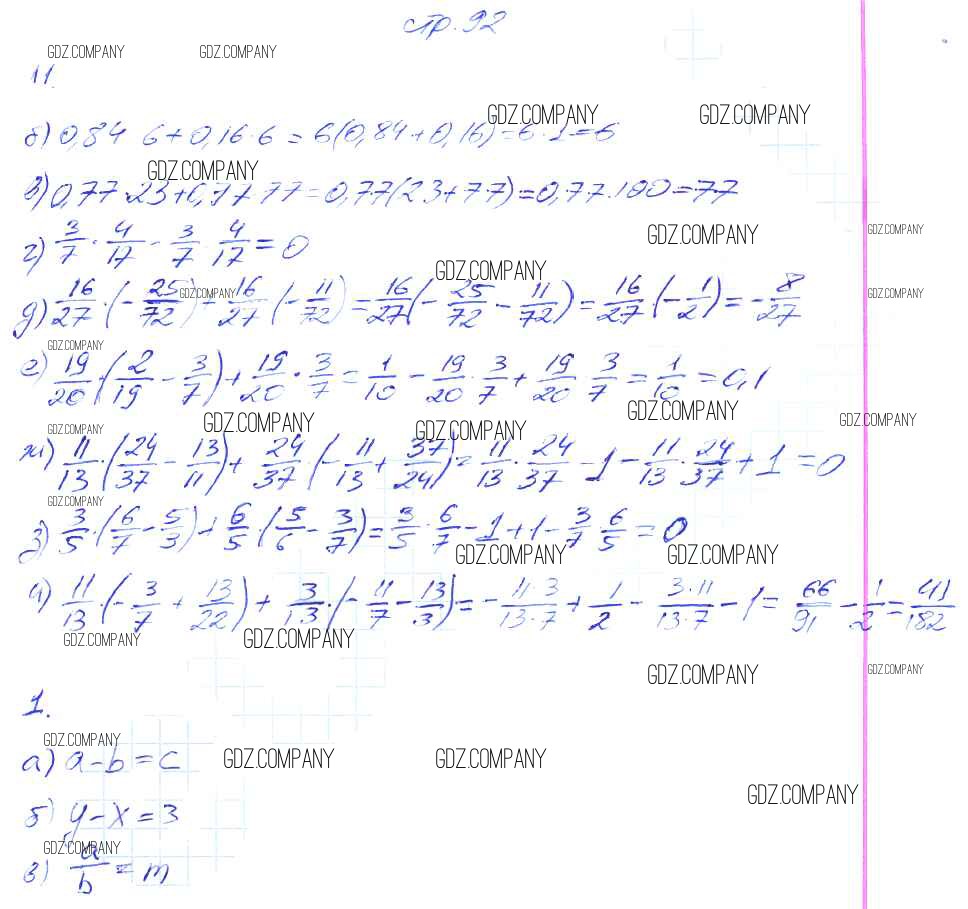 стр. 92
GDZ.COMPANY GDZ.COMPANY
11.
GDZ.COMPANY GDZ.COMPANY
б) 0,84 6 + 0,16 · 6 = 6(0,84 + 0,16) = 6 · 1 = 6
GDZ.COMPANY
в) 0,77 · 23 + 0,77 77 = 0,77(23 + 77) = 0,77 · 100 = 77
GDZ.COMPANY GDZ.COMPANY
г) 3/7 · 4/17 - 3/7 4/17 = 0
GDZ.COMPANY
д) 16/27 · (-25/72) - 16/27 (-11/72) = 16/27 (-25/72 - 11/72) = 16/27 · (-1/2) = -8/27
GDZ.COMPANY GDZ.COMPANY
GDZ.COMPANY
е) 19/20 · (2/19 - 3/7) + 19/20 · 3/7 = 1/10 - 19/20 · 3/7 + 19/20 · 3/7 = 1/10 = 0,1
GDZ.COMPANY GDZ.COMPANY GDZ.COMPANY GDZ.COMPANY GDZ.COMPANY
ж) 11/13 · (24/37 - 13/11) + 24/37 · (-11/13 + 37/24) = 11/13 · 24/37 - 1 - 11/13 · 24/37 + 1 = 0
GDZ.COMPANY
з) 3/5 · (6/7 - 5/3) + 6/5 · (5/6 - 3/7) = 3/5 · 6/7 - 1 + 1 - 3/7 6/5 = 0
GDZ.COMPANY GDZ.COMPANY
и) 11/13 · (-3/7 + 13/22) + 3/13 · (-11/7 - 13/3) = - 11·3/13·7 + 1/2 - 3·11/13·7 - 1 = 66/91 - 1/2 = 41/182
GDZ.COMPANY GDZ.COMPANY
GDZ.COMPANY GDZ.COMPANY
1.
GDZ.COMPANY
а) a - b = c
GDZ.COMPANY GDZ.COMPANY
GDZ.COMPANY
б) y - x = 3
GDZ.COMPANY
в) a/b = m